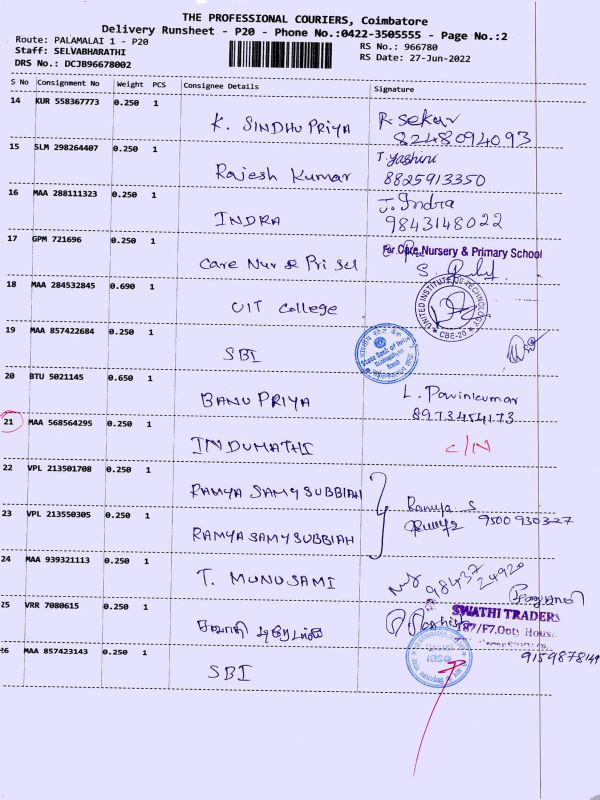 THE PROFESSIONAL COURIERS, Coimbatore
Delivery Runsheet - P20 - Phone No.:0422-3505555 - Page No.:2
Route: PALAMALAI 1 - P20
RS No.: 966780
Staff: SELVABHARATHI
RS Date: 27-Jun-2022
DRS No.: DCJB96678002
S No Consignment No Weight PCS Consignee Details Signature
14 KUR 558367773 0.250 1
K. SINDHU PRIYA R. Sekar
8248094093
15 SLM 298264407 0.250 1
Rajesh Kumar T. Yashini
8825913350
16 MAA 288111323 0.250 1
INDRA J. Indra
9843148022
17 GPM 721696 0.250 1
Care Nur & Pri Scl For Care Nursery & Primary School
18 MAA 284532845 0.690 1
UIT College UNITED INSTITUTE OF TECHNOLOGY
CBE-20
19 MAA 857422684 0.250 1
SBI State Bank of India
20 BTU 5021145 0.650 1
BANU PRIYA L. Pavinkumar
8973454173
21 MAA 568564295 0.250 1
INDUMATHI C/N
22 VPL 213501708 0.250 1
RAMYA SAMY SUBBIAH
Ramya S
23 VPL 213550305 0.250 1
RAMYA SAMY SUBBIAH 9500930327
24 MAA 939321113 0.250 1
T. MUNUSAMI 9843724920
25 VRR 7080615 0.250 1
சுவாதி டிரேடர்ஸ் SWATHI TRADERS
F7,Ooty House
26 MAA 857423143 0.250 1
SBI 9159878149